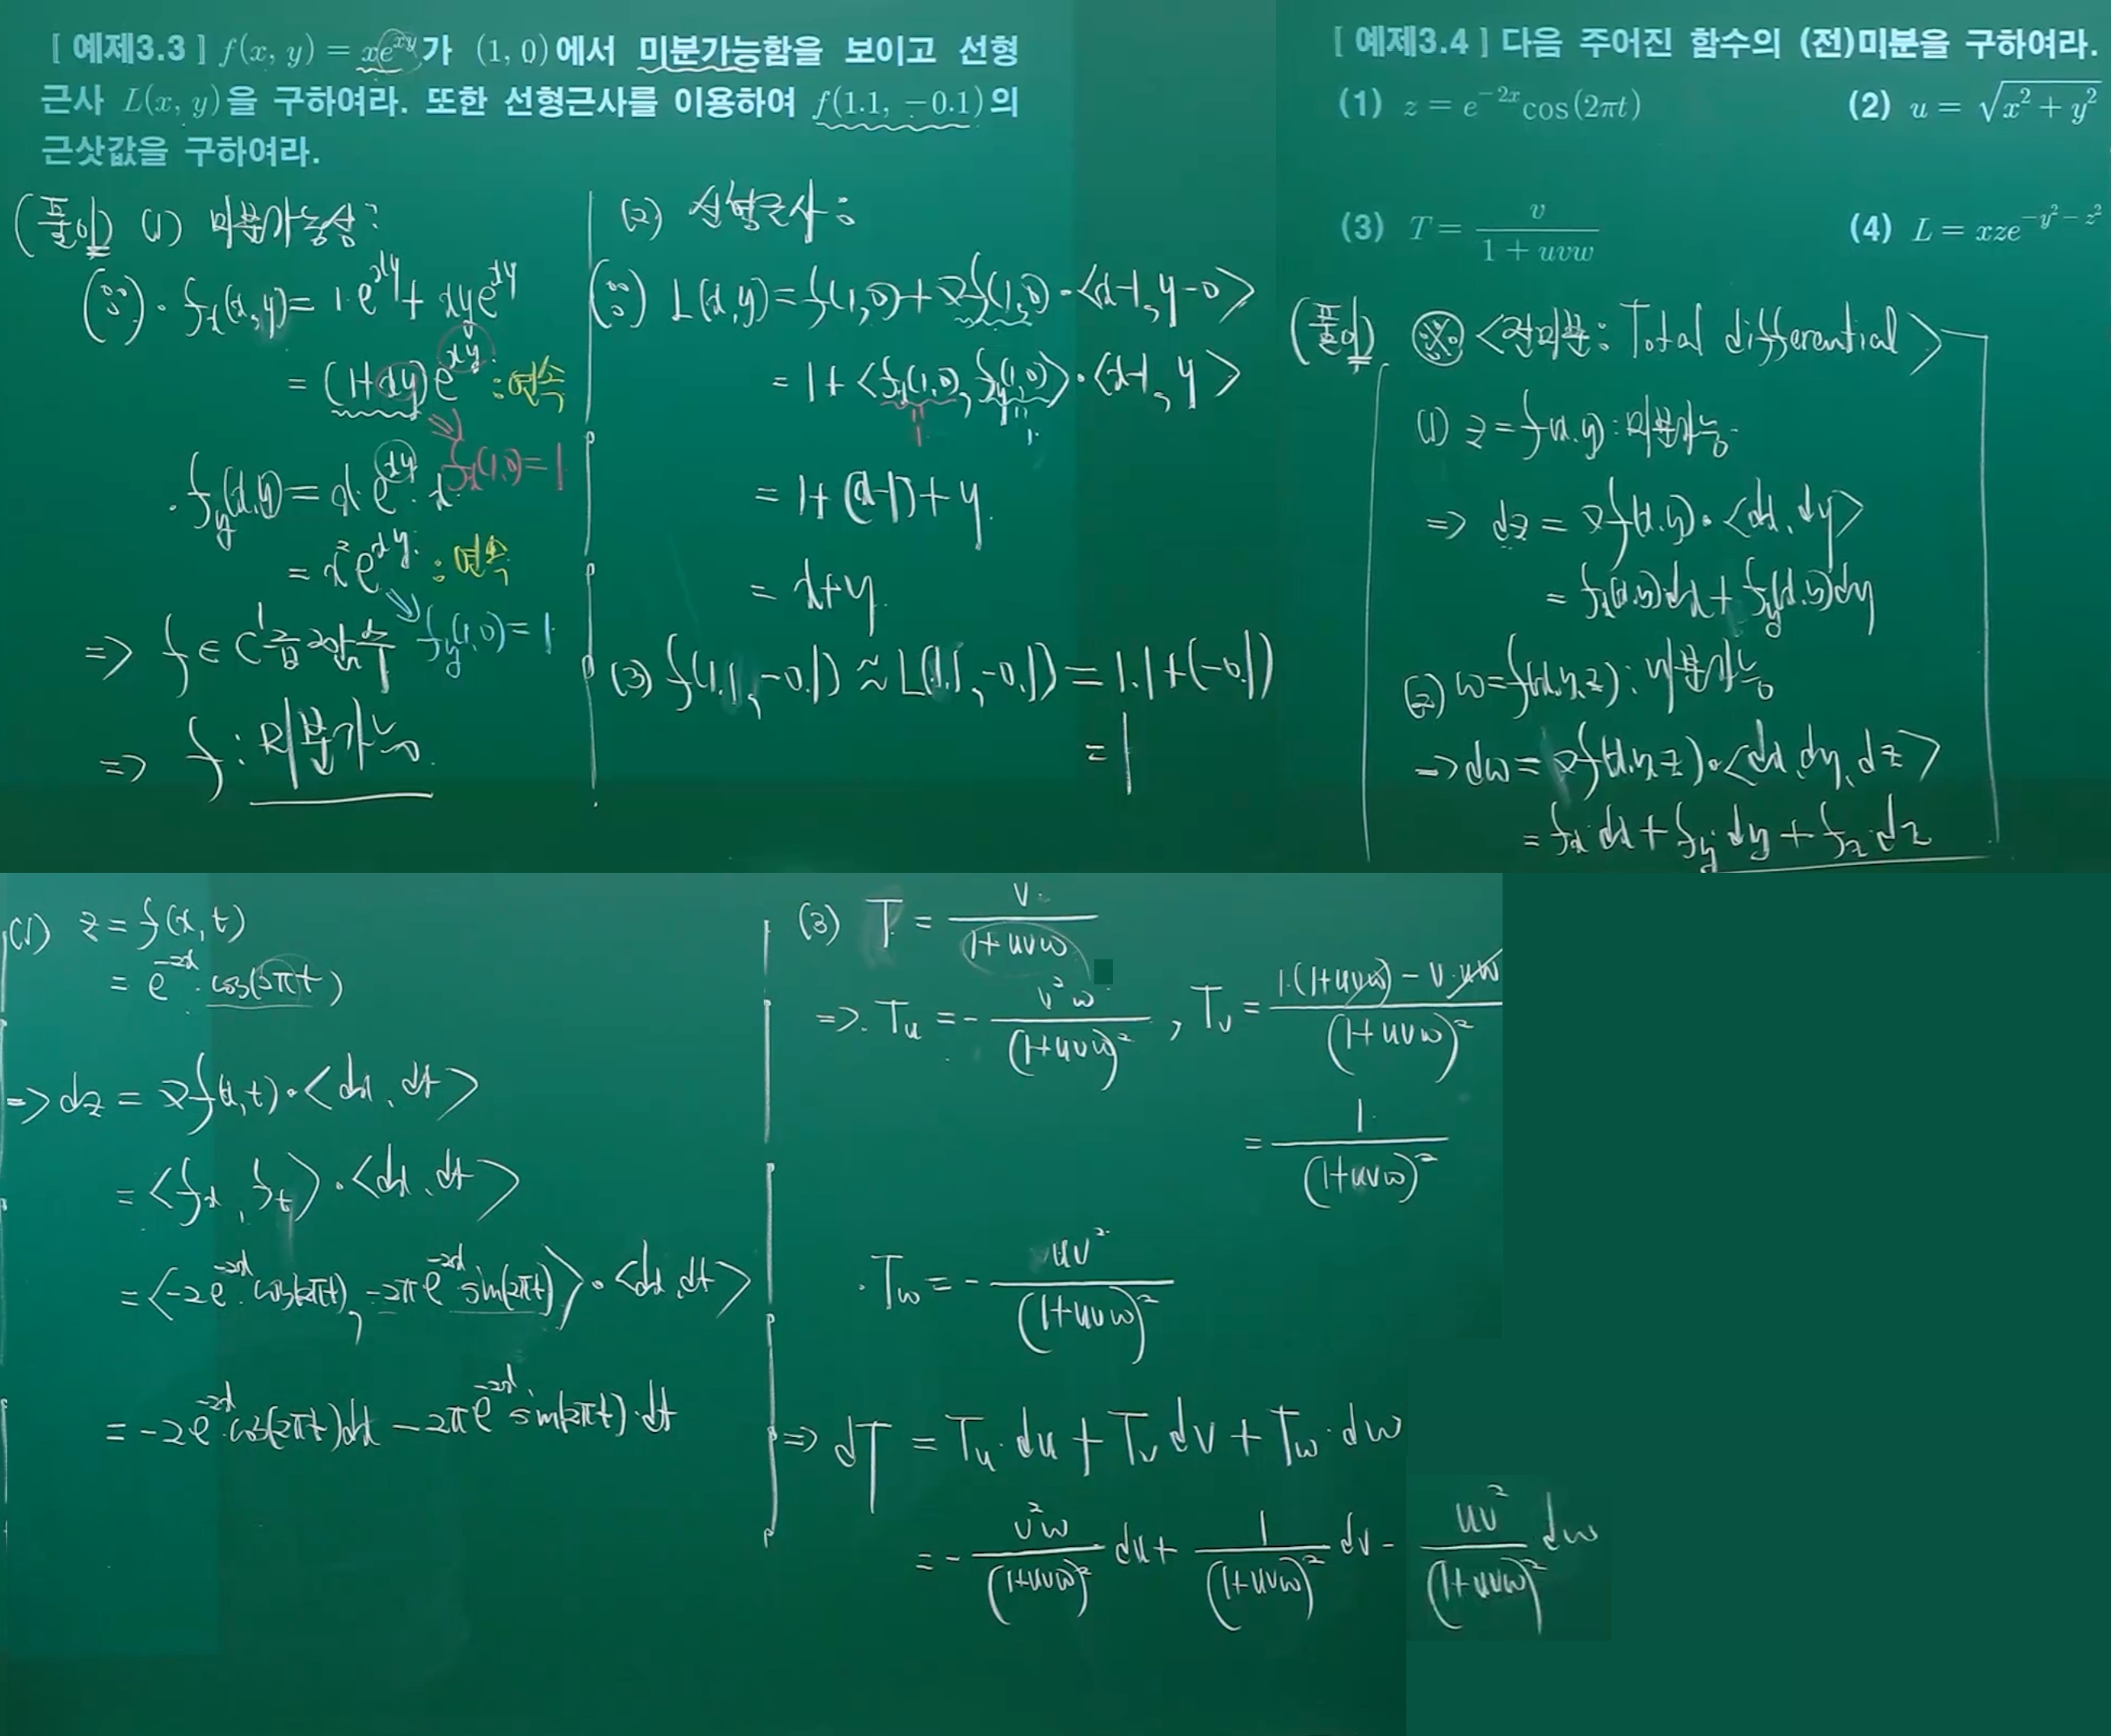 [ 예제3.3 ] f(x, y) = xe^{xy} 가 (1, 0)에서 미분가능함을 보이고 선형
근사 L(x, y)을 구하여라. 또한 선형근사를 이용하여 f(1.1, −0.1)의
근삿값을 구하여라.
(풀이) (1) 미분가능성:
(∵) · f_x(x,y) = 1·e^{xy} + xye^{xy}
= (1+xy)e^{xy} : 연속
f_x(1,0) = 1
· f_y(x,y) = x·e^{xy}·x
= x²e^{xy} : 연속
f_y(1,0) = 1
=> f ∈ C¹급함수
=> f : 미분가능
(2) 선형근사 :
(∵) L(x,y) = f(1,0) + ∇f(1,0)·<x-1, y-0>
= 1 + <f_x(1,0), f_y(1,0)>·<x-1, y>
" "
1 1
= 1 + (x-1) + y
= x+y
(3) f(1.1, -0.1) ≈ L(1.1, -0.1) = 1.1 + (-0.1)
= 1
[ 예제3.4 ] 다음 주어진 함수의 (전)미분을 구하여라.
(1) z = e^{−2x}cos(2πt) (2) u = √(x² + y²)
(3) T = v/(1 + uvw) (4) L = xze^{−y²−z²}
(풀이) ※ <전미분 : Total differential>
(1) z = f(x,y) : 미분가능
=> dz = ∇f(x,y)·<dx, dy>
= f_x(x,y)dx + f_y(x,y)dy
(2) w = f(x,y,z) : 미분가능
=> dw = ∇f(x,y,z)·<dx, dy, dz>
= f_x dx + f_y·dy + f_z·dz
(1) z = f(x,t)
= e^{-2x}·cos(2πt)
=> dz = ∇f(x,t)·<dx, dt>
= <f_x, f_t>·<dx, dt>
= <-2e^{-2x}cos(2πt), -2πe^{-2x}sin(2πt)>·<dx, dt>
= -2e^{-2x}cos(2πt)dx - 2πe^{-2x}sin(2πt)·dt
(3) T = v/(1+uvw)
=> T_u = - v²w/(1+uvw)², T_v = (1·(1+uvw) - v·uw)/(1+uvw)²
= 1/(1+uvw)²
· T_w = - uv²/(1+uvw)²
=> dT = T_u·du + T_v dv + T_w·dw
= - v²w/(1+uvw)² du + 1/(1+uvw)² dv - uv²/(1+uvw)² dw